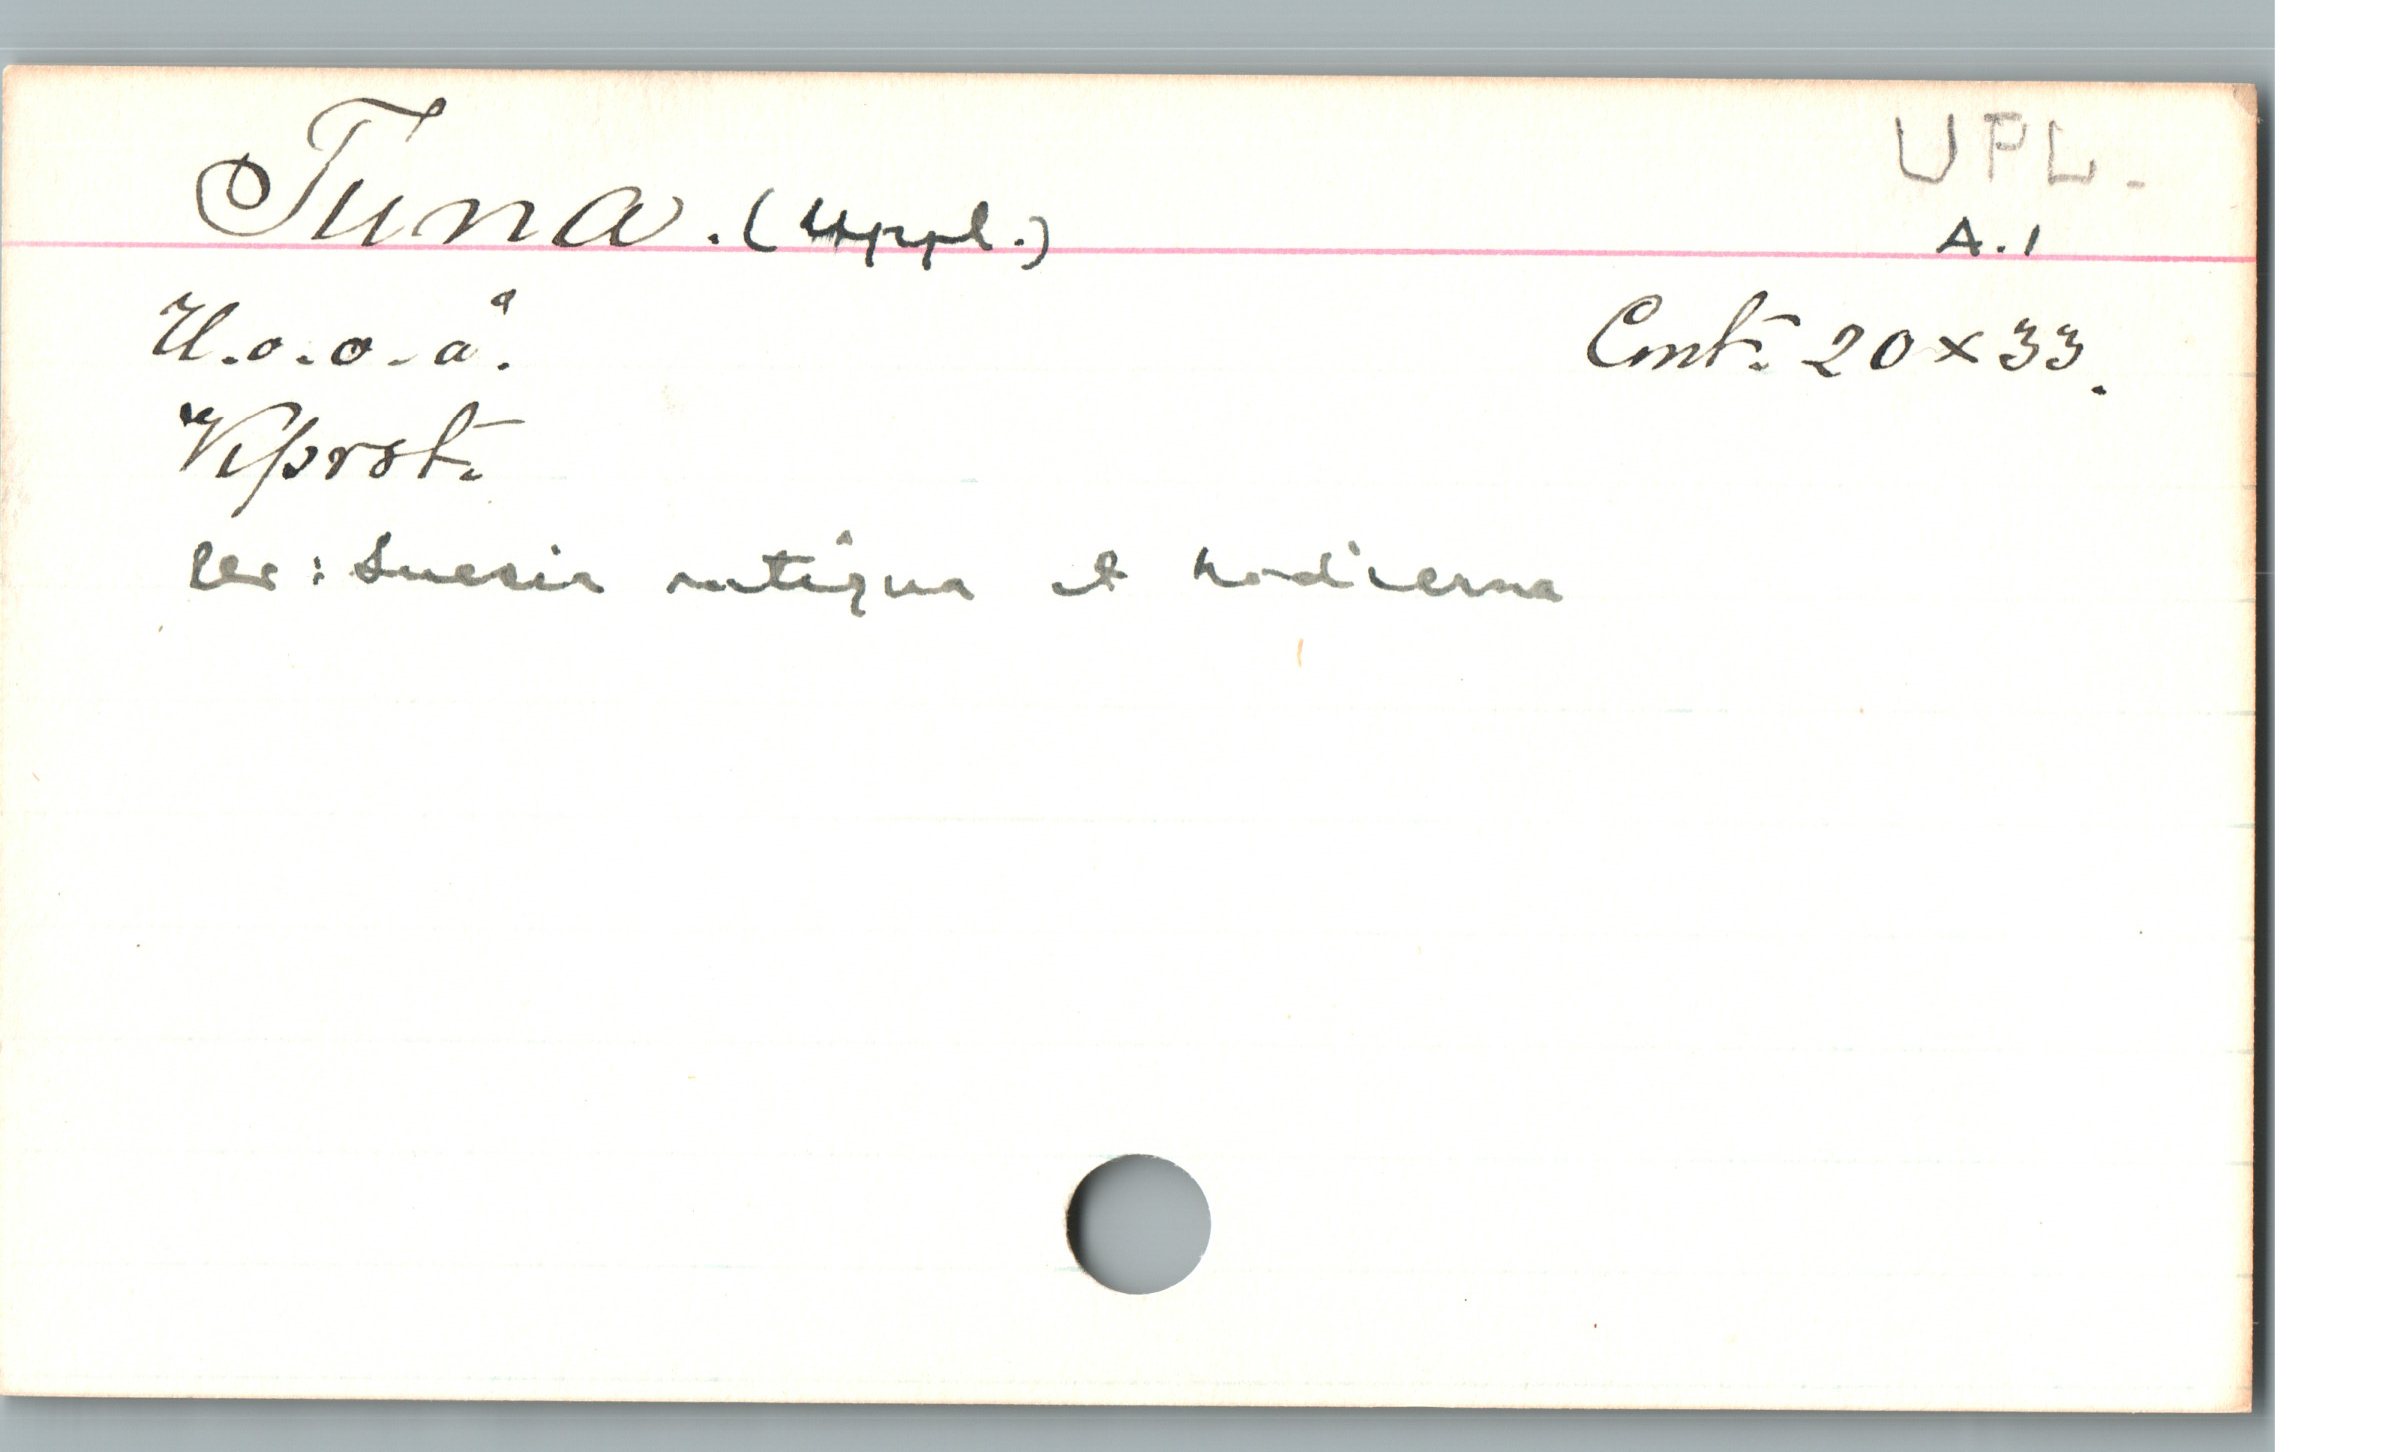 UPL.
Tuna. (Uppl.)
A.1
U.o.o.å. Cmt. 20 x 33.
Kprst.
Ur: Suecia antiqua et hodierna